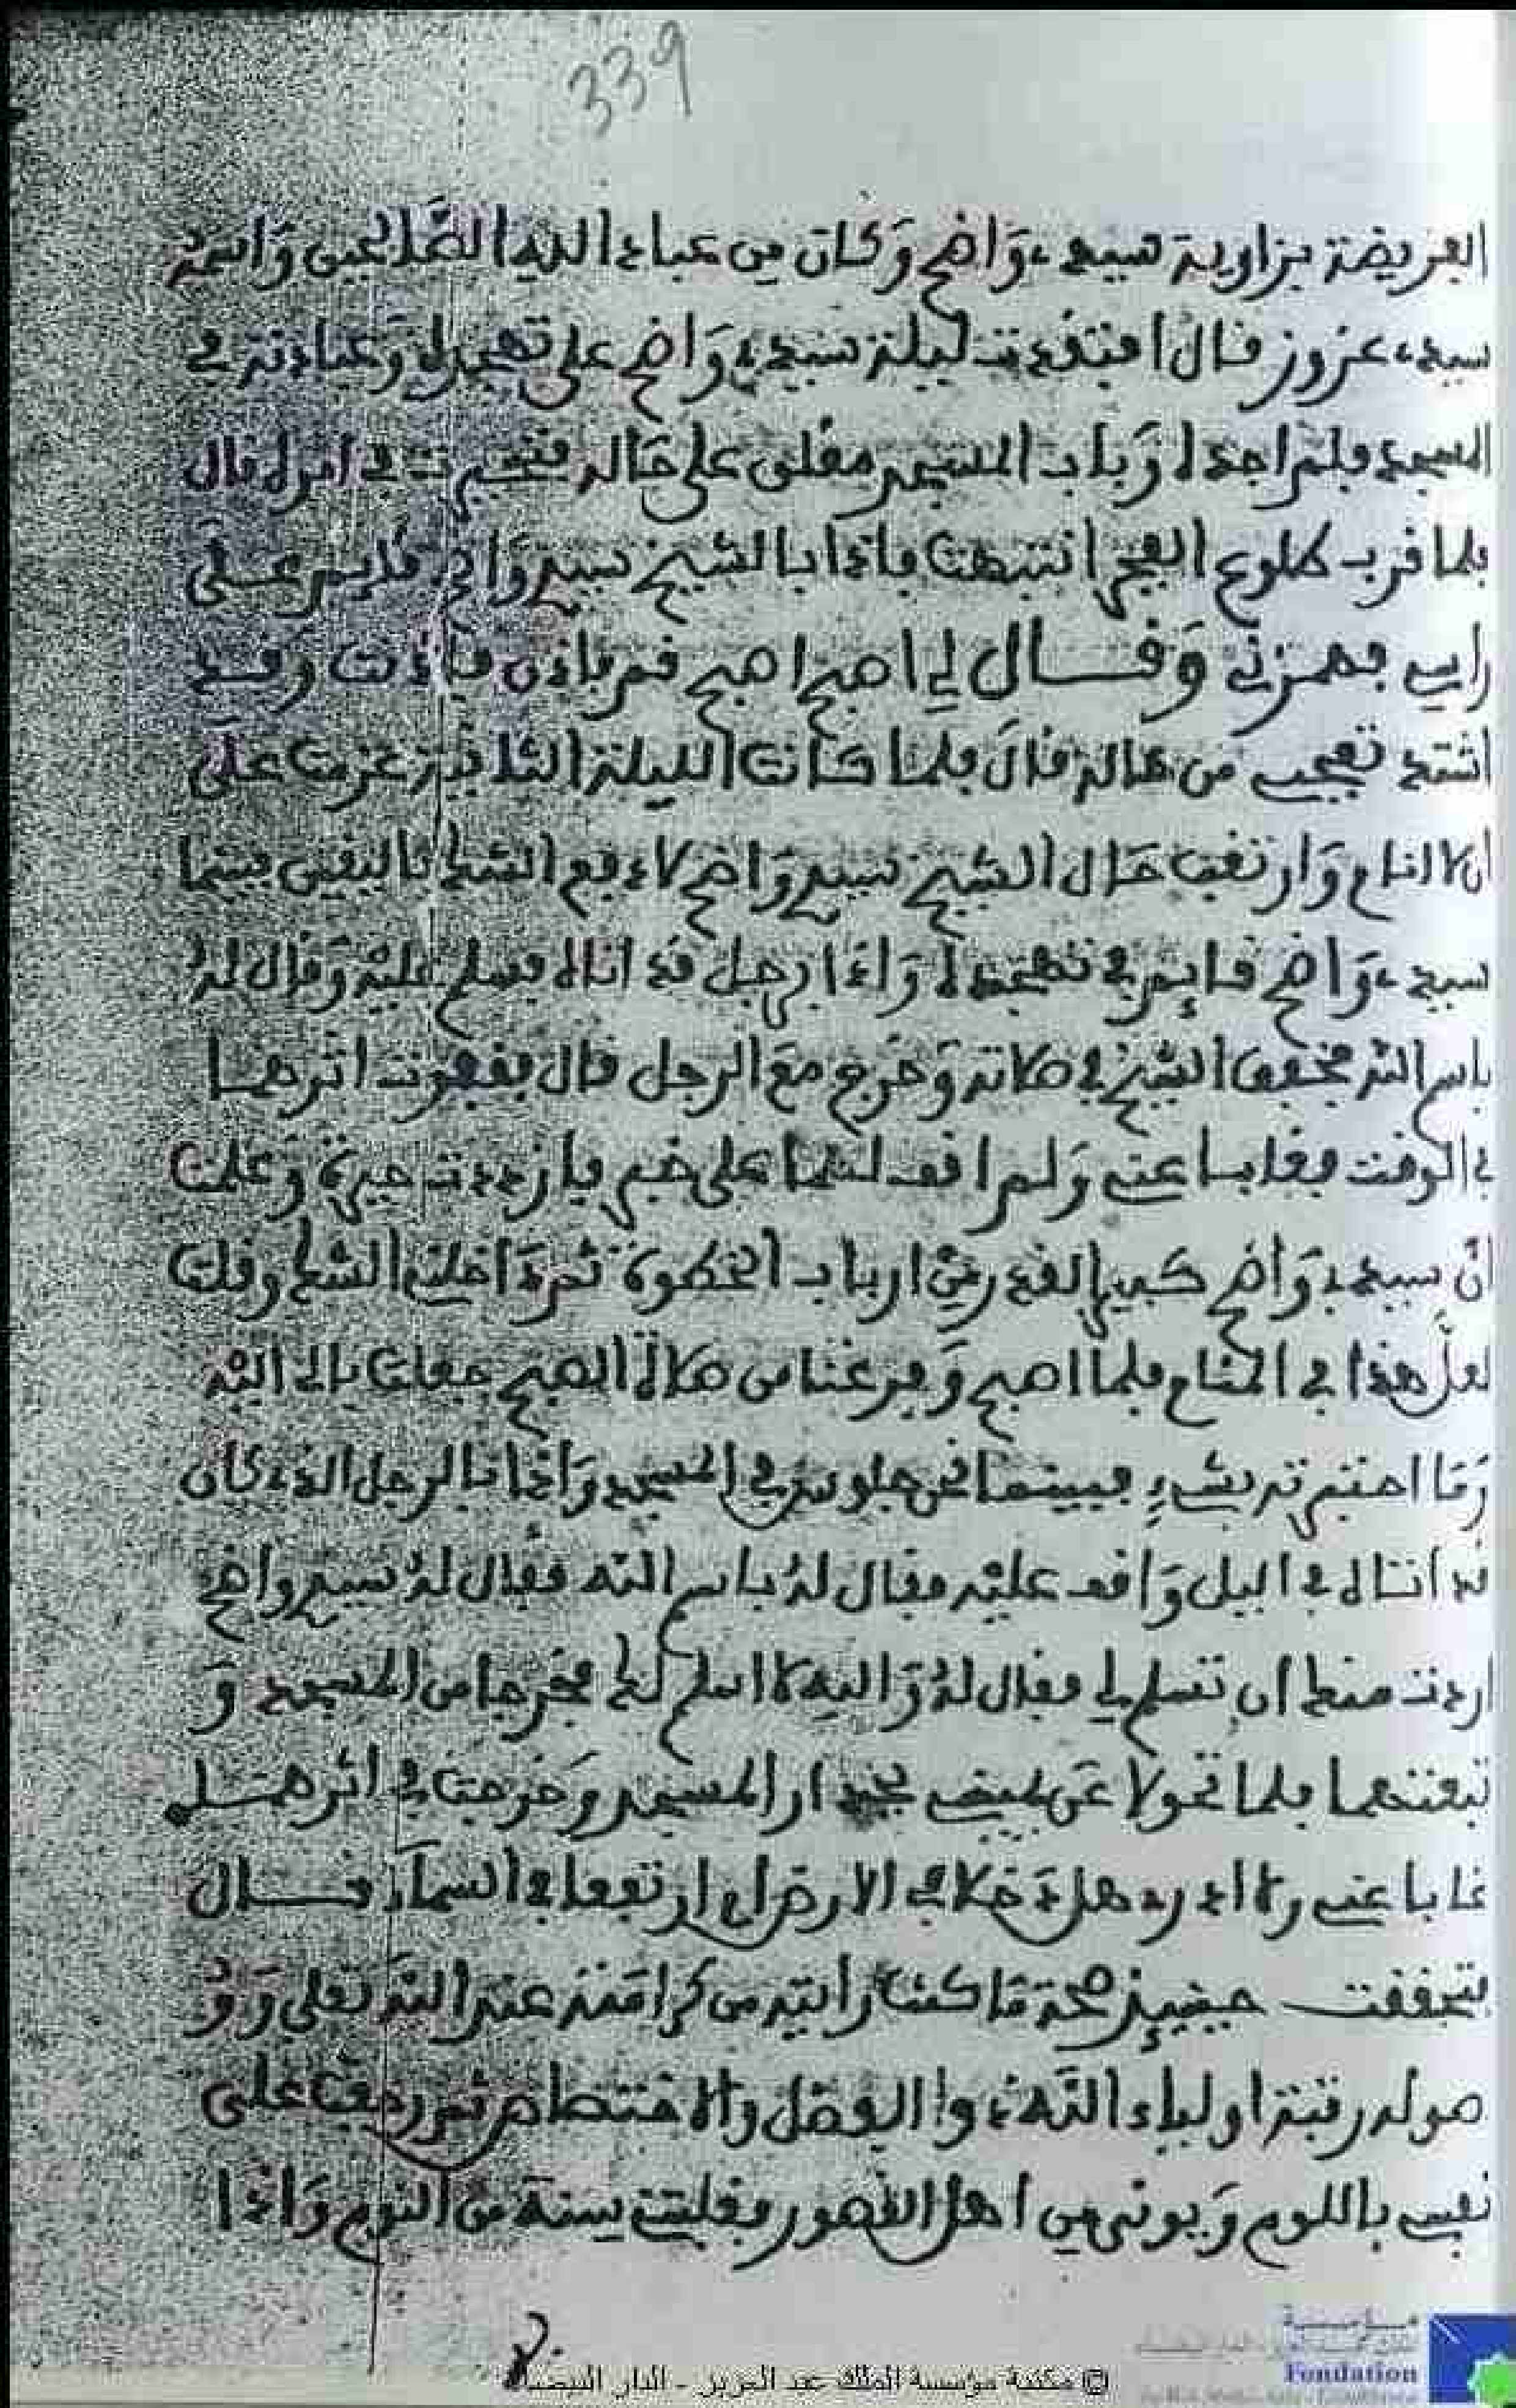 339
الفريضة بزاوية سيدي وَاضح وَكان من عباد الله الصَّالحين وَاسمه
سيدي عزوز قال افتقدت ليلة سيدي وَاضح على تهجده وَعبادته في
المسجد فلم اجده وَباب المسجد مغلق على حاله فتحيرت في امره قال
فلما قرب طلوع الفجر انتبهت فاذا بالشيخ سيدي وَاضح قايم على
راسي فهمزني وَقال لي اصبح اصبح قم فاذن فاذنت وقد
اشتد تعجبي من حاله قال فلما كانت الليلة الثانية عزمت على
ان لا انام وَارتقبت حَال الشيخ سيدي وَاضح لادفع الشك باليقين فبينما
سيدي وَاضح قايم في تهجده وَاذا برجل قد اتاه فسلم عليه وَقال له
باسم الله فخفف الشيخ في صلاته وَخرج معَ الرجل قال فقفوت اثرهما
في الوقت فغابا عني وَلم اقف لهما على خبر فازددت حيرة وَعلمت
انَّ سيدي وَاضح كبير القدر من ارباب الخطوة ثم داخلني الشك وقلت
لعلّ هذا في المنام فلما اصبح وَفرغنا من صلاة الصبح جعلت بالي اليه
وَما اخبرته بشيء فبينما نحن جلوس في المسجد وَاذا بالرجل الذي كان
قد اتاه في اليل وَاقف عليه فقال لهُ باسم الله فقال لهُ سيدي واضح
اردت منك ان تسلم لي فقال لهُ وَالله لا اسلم لك فخرجا من المسجد وَ
تبعتهما فلما تحولا عَن بجدار المسجد وَخرجت في اثرهما
غابا عني ولا ادري هل دخلا في الارض او ارتفعا في السماء قال
فتحققت حينيذ صحة مَا كنت رَايته من كرامته عند الله تعلى وَ
رتبة اولياء الله ذوا الفضل والاختصاص ثم رجعت على
نفسي باللوم وَبوني من اهل القصور فغلبتني سنة من النوم وَاذا
© مكتبة مؤسسة الملك عبد العزيز - الدار البيضاء
Fondation